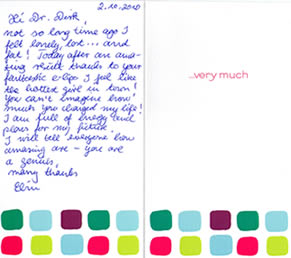 2.10.2010
Hi Dr. Dirk,
not so long time ago I
felt lonely, lost... and
fat! Today after an ama-
zing result thanks to your
fantastic e-lipo I feel like
the hottest girl in town!
You can't imagine how
much you changed my life!
I am full of energy and
plans for my future.
I will tell everyone how
amazing are - you are
a genius,
many thanks
...very much